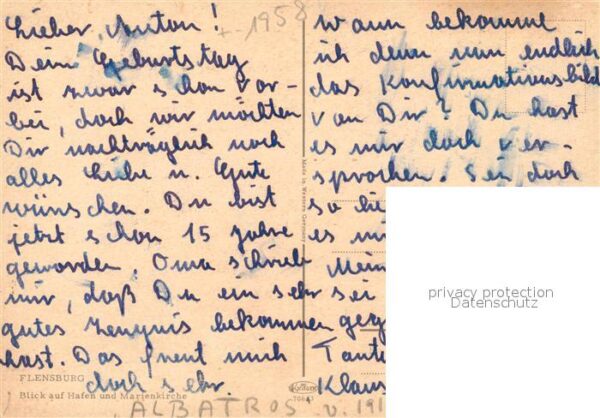 Lieber Anton!
+ 1958
Dein Geburtstag
ist zwar schon vor-
bei, doch wir möchten
Dir nachträglich noch
alles Liebe u. Gute
wünschen. Du bist
jetzt schon 15 Jahre
geworden, Oma schrieb
mir, daß Du ein sehr
gutes Zeugnis bekommen
hast. Das freut mich
doch sehr.
Wann bekomme
ich denn nun endlich
das Konfirmationsbild
von Dir? Du hast
es mir doch ver-
sprochen. Sei doch
so
es
sei
Tante
Klaus
Made in Western Germany
privacy protection
Datenschutz
FLENSBURG
Blick auf Hafen und Marienkirche
ALBATROS v. 191